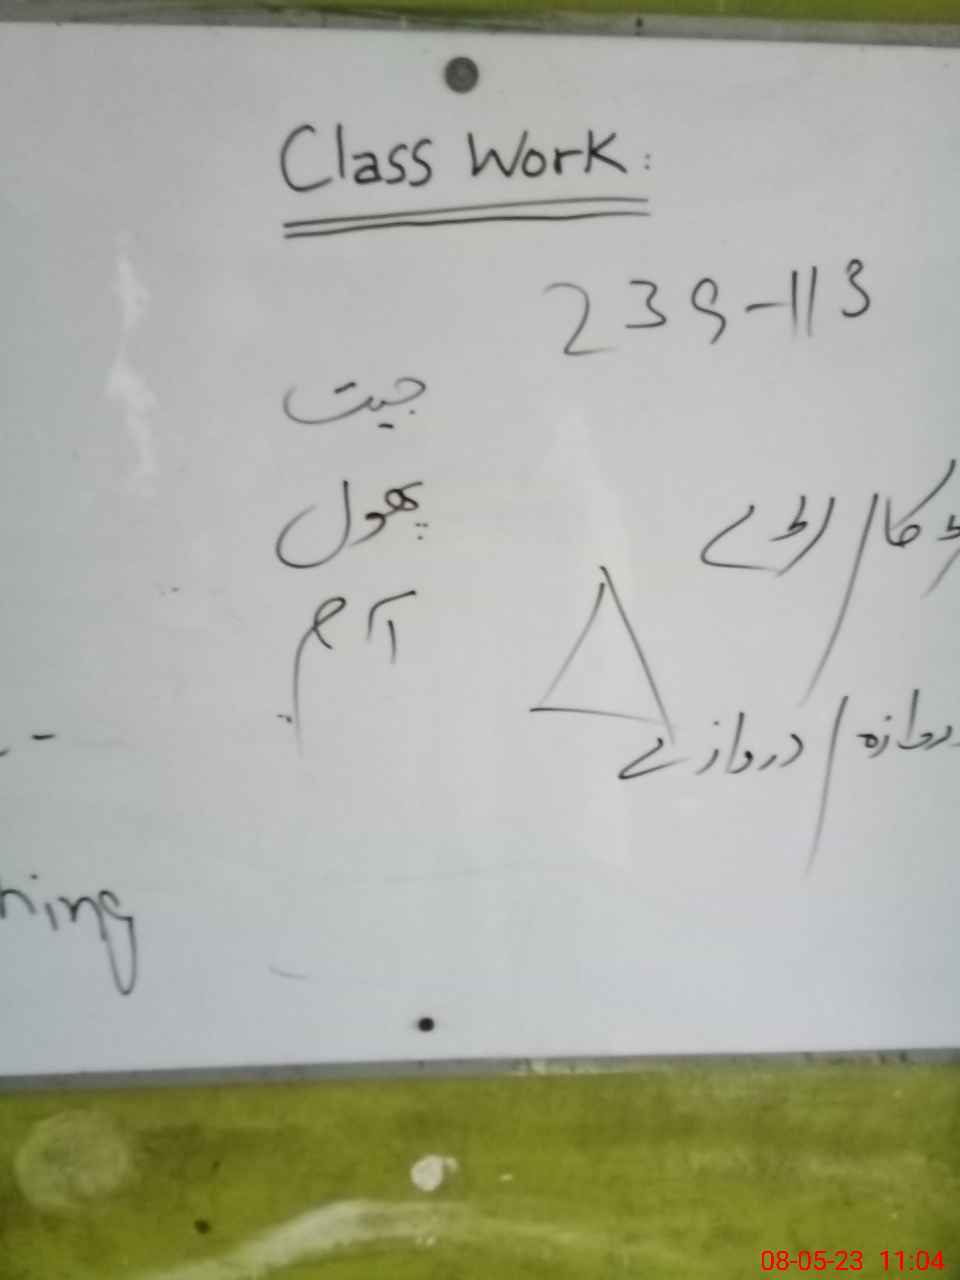 Class Work:
239-113
جیت
پھول
لڑکا/لڑکے
آم
دروازہ/دروازے
hing
08-05-23 11:04